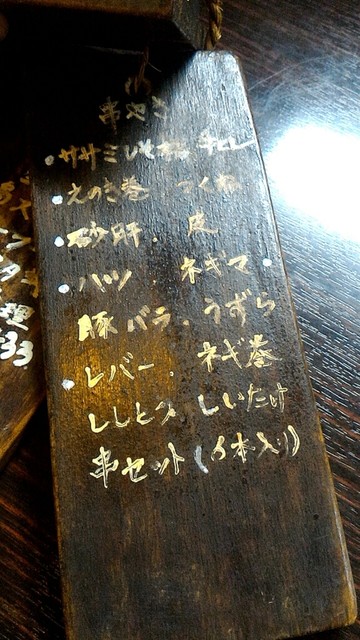 串やき
・ササミしそ巻 牛ヒレ
・えのき巻 つくね
・砂肝. 皮
・ハツ ネギマ・
豚バラ. うずら
・レバー. ネギ巻
ししとう しいたけ
串セット(5本入り)
理
33